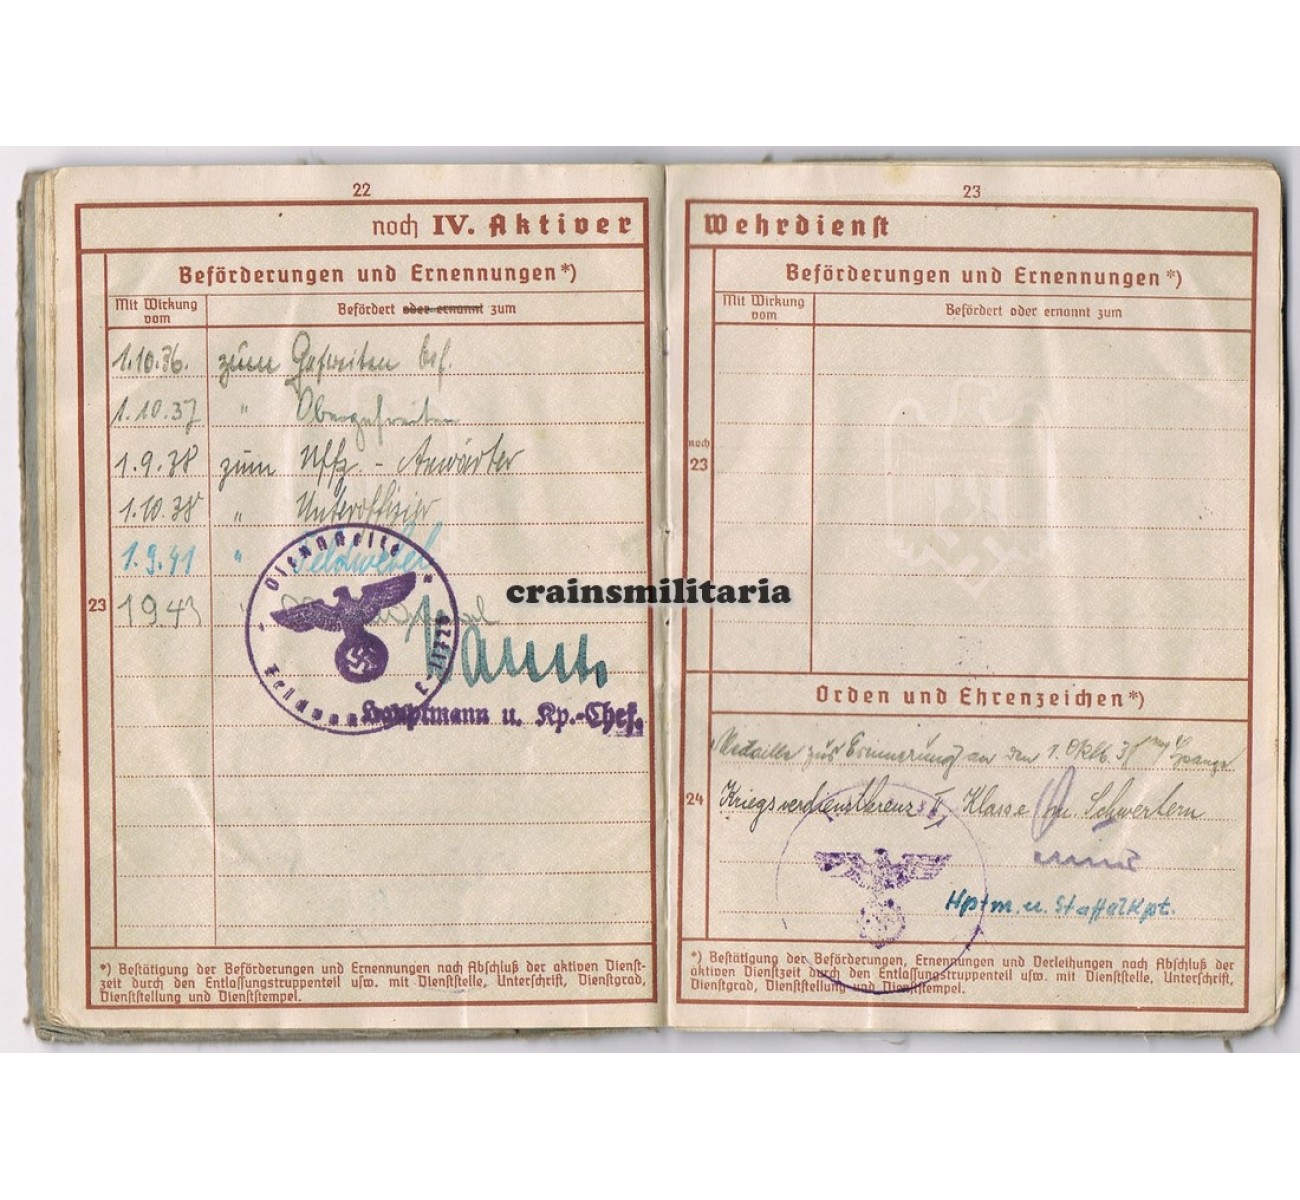 22
noch IV. Aktiver
Beförderungen und Ernennungen*)
Mit Wirkung vom
Befördert oder ernannt zum
1.10.36. zum Gefreiten bef.
1.10.37 " Obergefreiten
1.9.38 zum Uffz. - Anwärter
1.10.38 " Unteroffizier
1.9.41 " Feldwebel
23
1943 "
Dienststelle
Hauptmann u. Kp.-Chef.
*) Bestätigung der Beförderungen und Ernennungen nach Abschluß der aktiven Dienst-
zeit durch den Entlassungstruppenteil usw. mit Dienststelle, Unterschrift, Dienstgrad,
Dienststellung und Dienststempel.
crainsmilitaria
23
Wehrdienst
Beförderungen und Ernennungen*)
Mit Wirkung vom
Befördert oder ernannt zum
noch
23
Orden und Ehrenzeichen*)
Medaille zur Erinnerung an den 1. Oktb. 38 Spange
24
Kriegsverdienstkreuz II. Klasse m. Schwertern
Hptm. u. Staffelkpt.
*) Bestätigung der Beförderungen, Ernennungen und Verleihungen nach Abschluß der
aktiven Dienstzeit durch den Entlassungstruppenteil usw. mit Dienststelle, Unterschrift,
Dienstgrad, Dienststellung und Dienststempel.